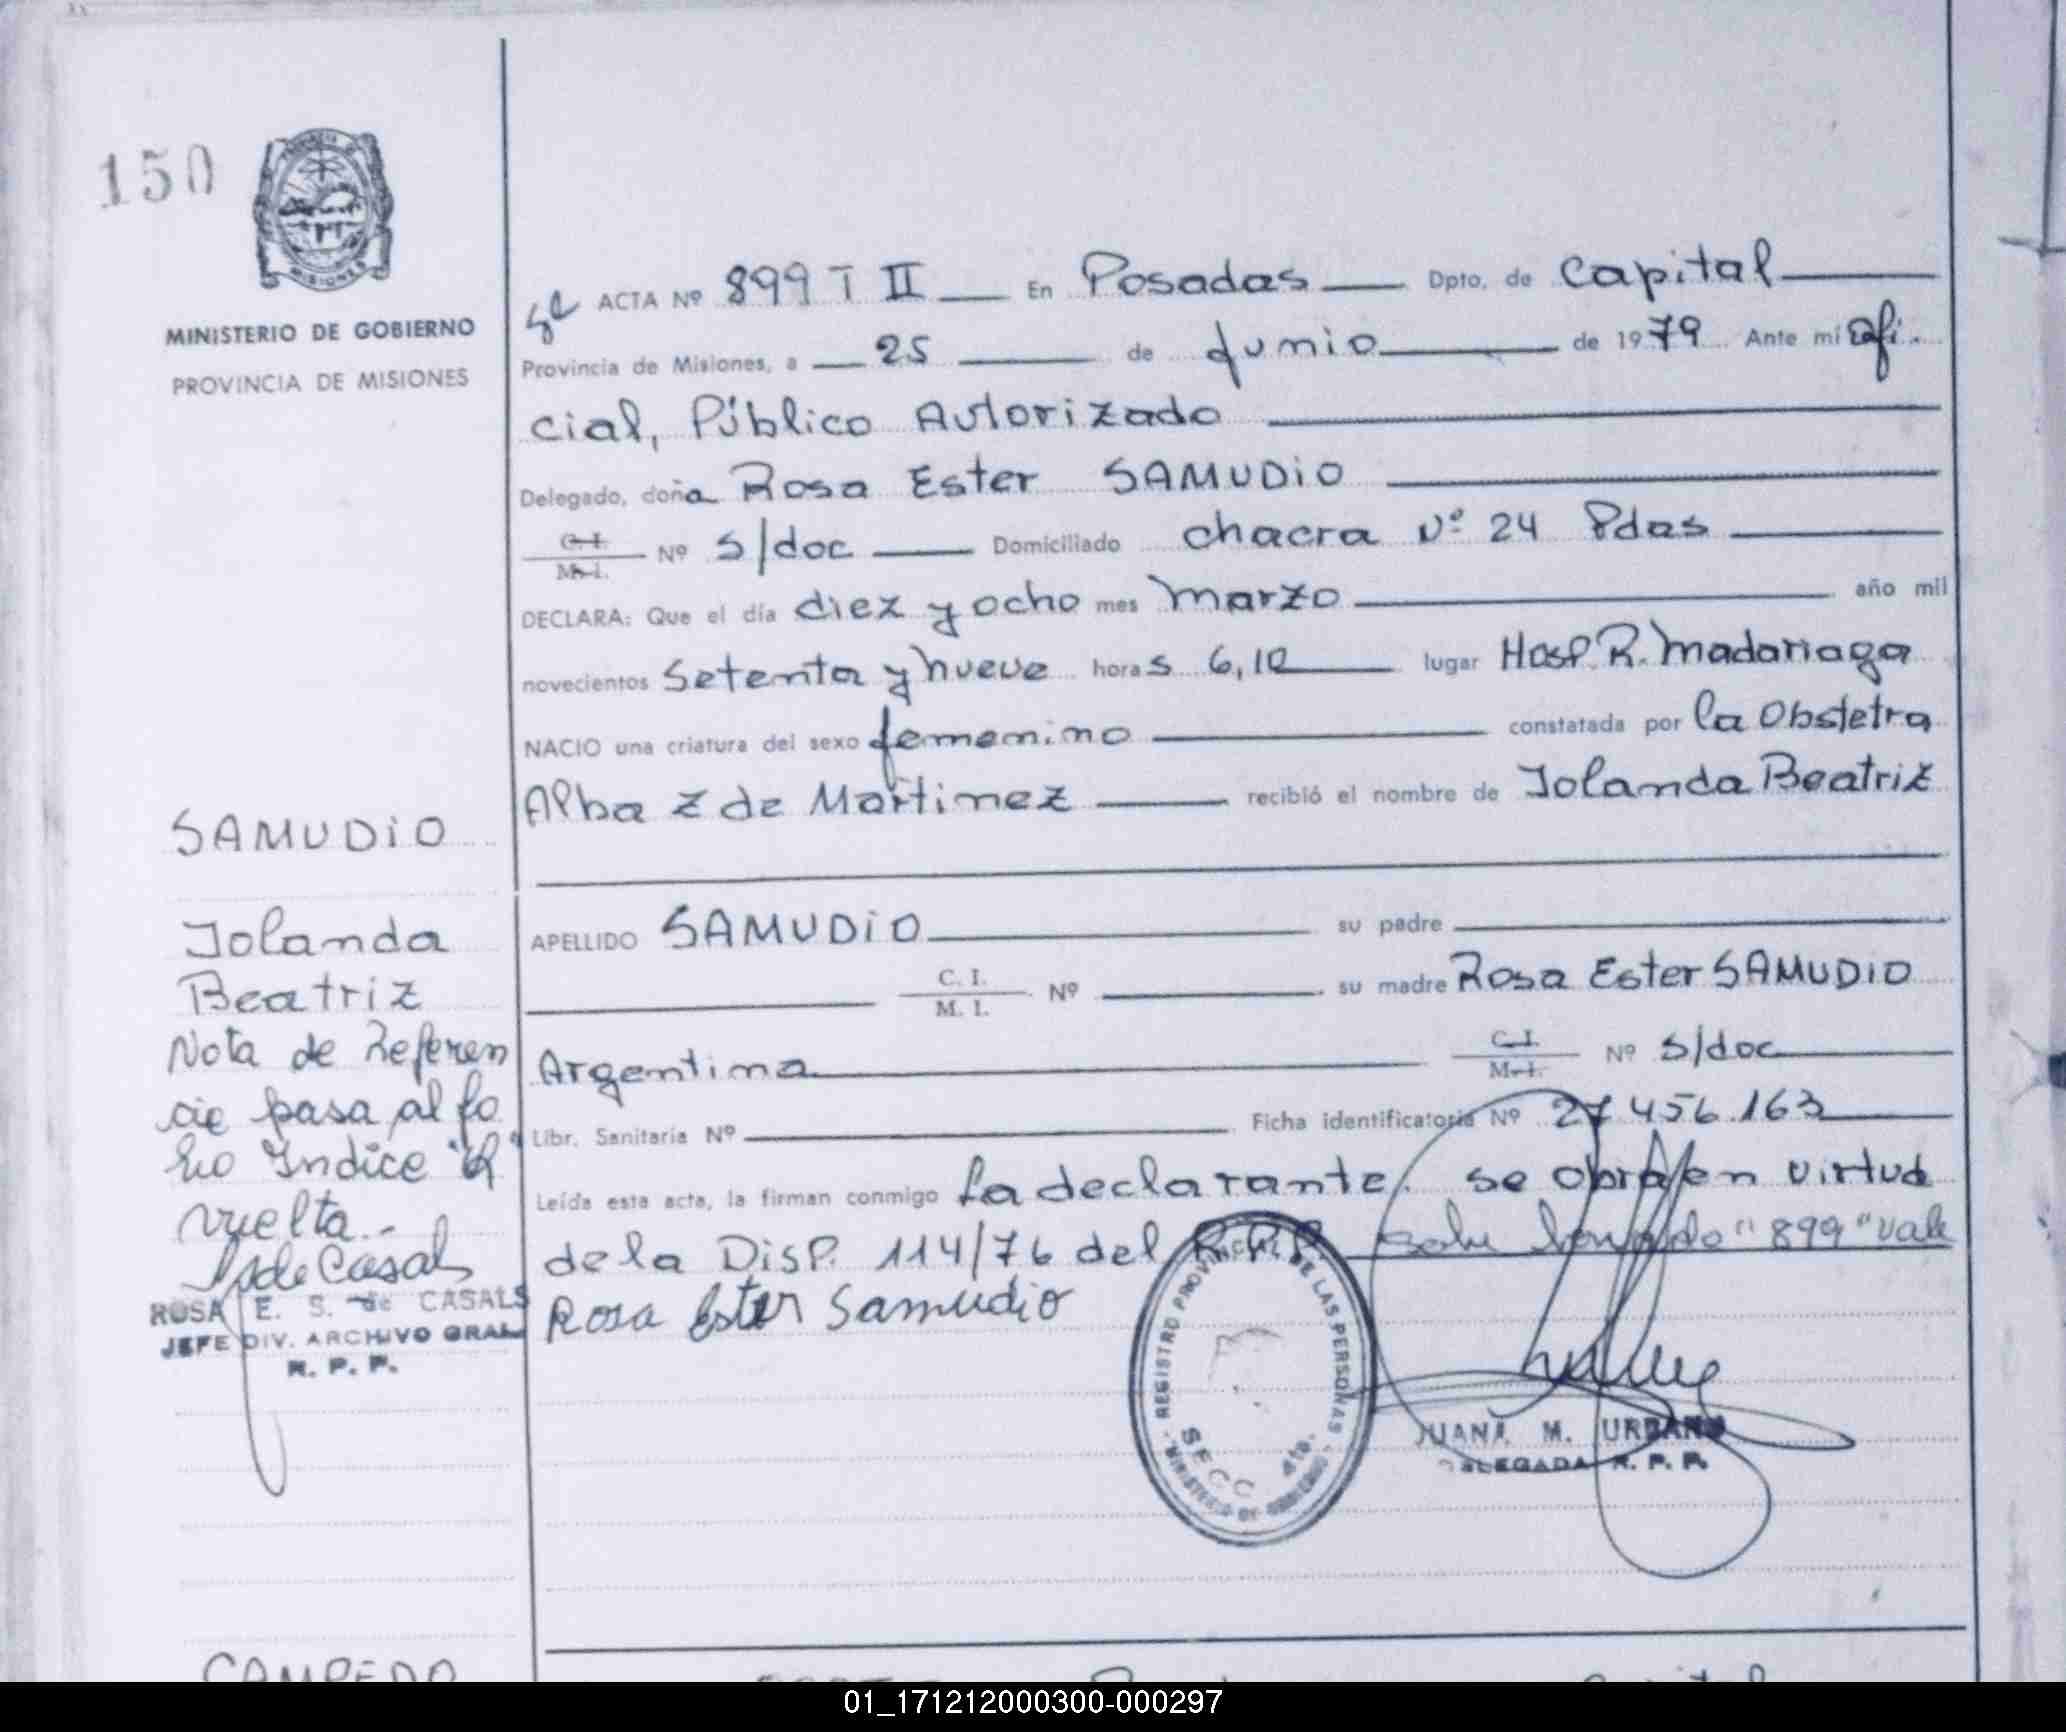 150
MINISTERIO DE GOBIERNO
PROVINCIA DE MISIONES
ACTA Nº 899 T II En Posadas Dpto. de Capital
Provincia de Misiones, a 25 de Junio de 1979 Ante mí Ofi
cial, Público Autorizado
Delegado, doña Rosa Ester SAMUDIO
C. I. M. I. Nº s/doc Domiciliado chacra Nº 24 Pdas
DECLARA: Que el día diez y ocho mes Marzo año mil
novecientos setenta y nueve horas 6,10 lugar Hosp. R. Madariaga
NACIO una criatura del sexo femenino constatada por la Obstetra
Alba Z de Martinez recibió el nombre de Iolanda Beatriz
SAMUDIO
Iolanda
Beatriz
Nota de Referen
cie pasa al fo
lio Indice "R"
vuelta.-
ROSA E. S. de CASALS
JEFE DIV. ARCHIVO GRAL
R. P. P.
APELLIDO SAMUDIO su padre
C. I. M. I. Nº su madre Rosa Ester SAMUDIO
Argentina C. I. M. I. Nº s/doc
Libr. Sanitaria Nº Ficha identificatoria Nº 27.456.163
Leída esta acta, la firman conmigo la declarante. se obra en virtud
de la Disp. 114/76 del R.P.P. sobre borrado "899" vale
Rosa Ester Samudio
REGISTRO PROVINCIAL DE LAS PERSONAS
MINISTERIO DE GOBIERNO
SECC 4ta.
JUANA M. URBANO
DELEGADA R. P. P.
01_171212000300-000297